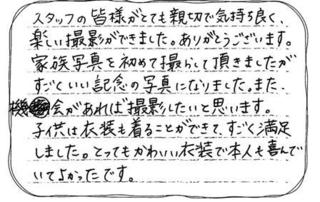 スタッフの皆様がとても親切で気持ち良く、
楽しい撮影ができました。ありがとうございます。
家族写真を初めて撮らして頂きましたが
すごくいい記念の写真になりました。また、
機会があれば撮影したいと思います。
子供は衣装も着ることができて、すごく満足
しました。とってもかわいい衣装で本人も喜んで
いてよかったです。